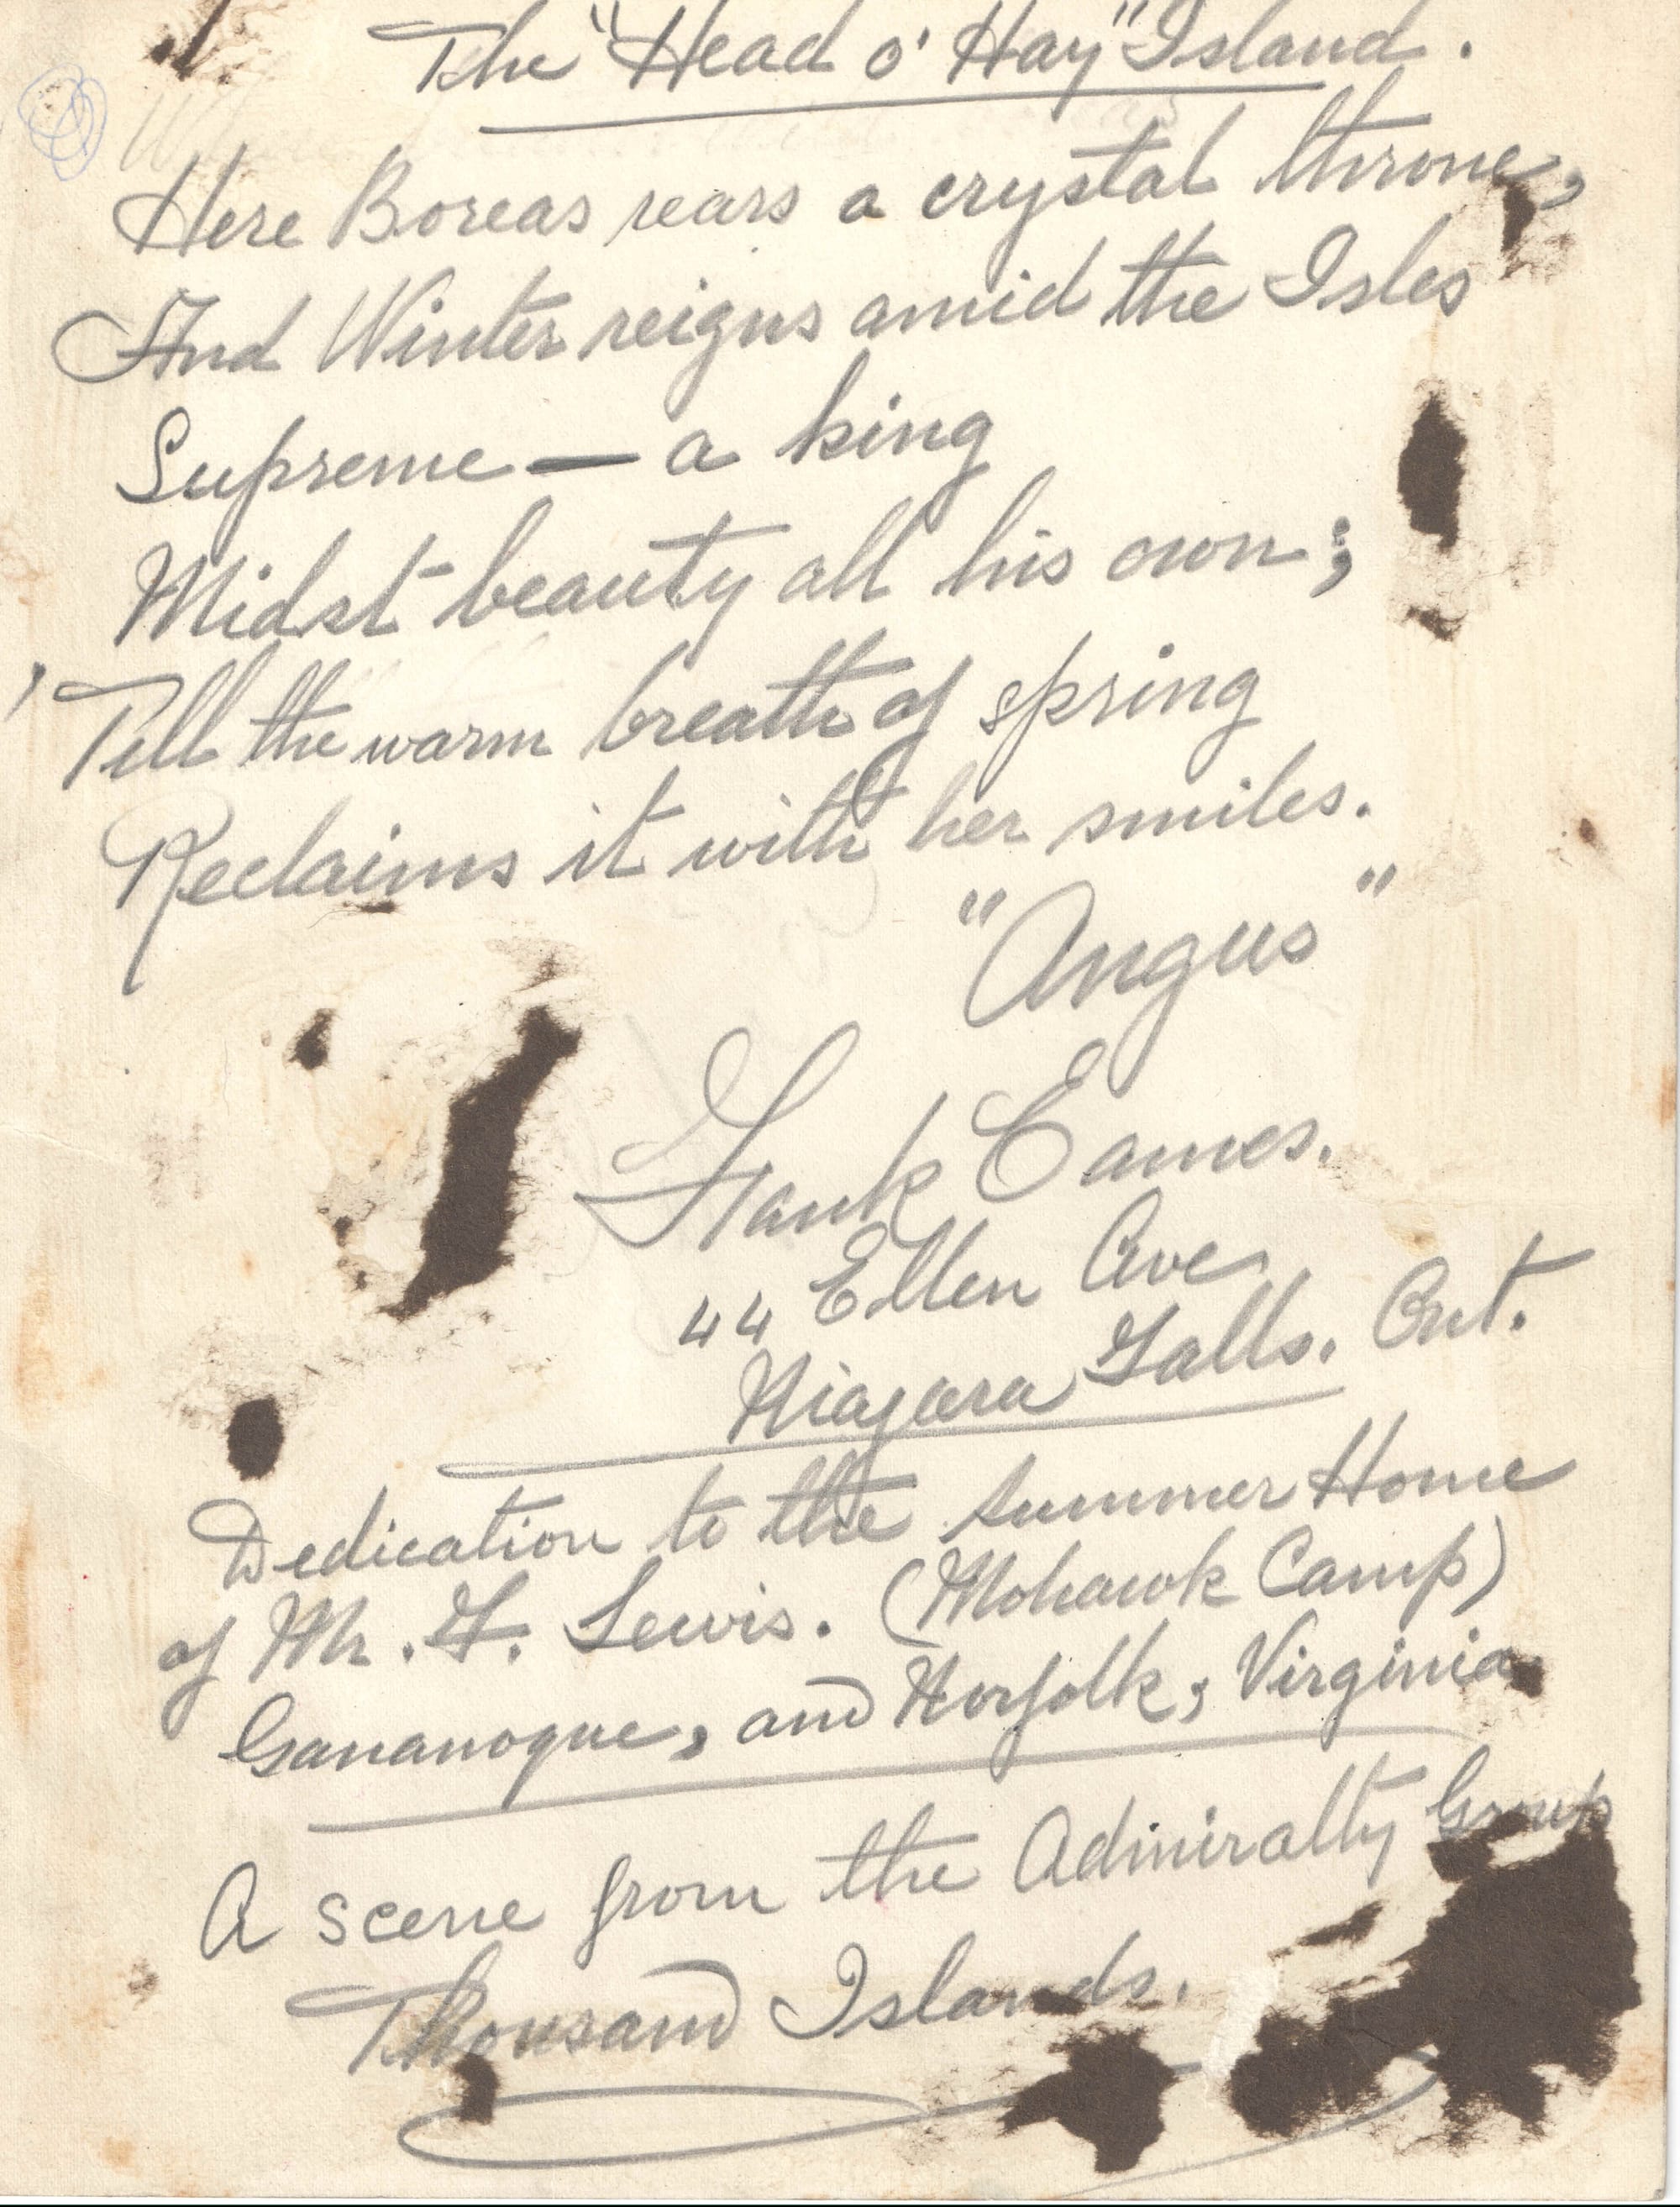 The "Head o' Hay" Island.
Here Boreas rears a crystal throne,
And Winter reigns amid the Isles
Supreme — a king
Midst beauty all his own;
'Till the warm breath of spring
Reclaims it with her smiles.
"Angus"
Frank Eames.
44 Ellen Ave
Niagara Falls. Ont.
Dedication to the Summer Home
of Mr. F. Lewis. (Mohawk Camp)
Gananoque, and Norfolk, Virginia
A scene from the Admiralty Group
Thousand Islands.